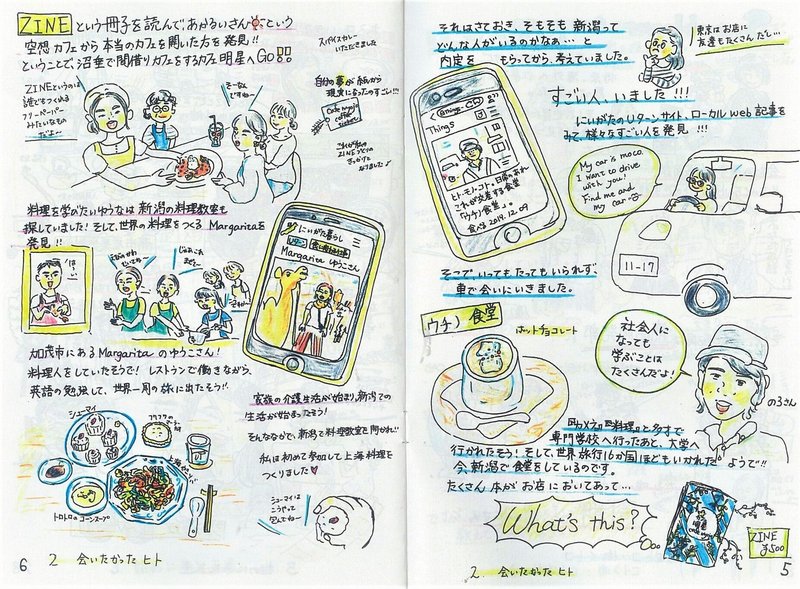 それはさておき、そもそも新潟って
どんな人がいるのかなぁ…と
内定を もらってから、考えていました。
東京はお店に
友達もたくさんだし…
すごい人、いました!!!
にいがたのUターンサイト、ローカルweb記事を
みて、様々なすごい人を発見!!!
Things
ヒト・モノ・コト、日常のあれ
これが交差する食堂
「ウチノ食堂」。
食べる 2019.12.09
My car is moco.
I want to drive
with you!
Find me and
my car
11-17
そこで、いってもたってもいられず、
車で会いにいきました。
ウチノ食堂
ホットチョコレート
社会人に
なっても
学ぶことは
たくさんだよ!
のろさん
専門学校へ行ったあと、大学へ
行かれたそう!そして世界旅行16か国ほどもいかれたようで!!
今、新潟で食堂をしているのです。
たくさん本がお店においてあって…
What's this?
ZINE
¥500
2 会いたかったヒト
5
ZINEという冊子を読んで、あかるいさんという
空想カフェから本当のカフェを開いた方を発見!!
ということで、沼垂で間借りカフェをするカフェ明星へGo!!
スパイスカレー
いただきました
ZINEというのは
誰でもつくれる
フリーペーパー
みたいなもの
だよ〜
そーなん
ですね〜
自分の夢が紙から
現実になったのすごい!!!
これが私の
ZINEづくりの
きっかけと
なりました♪
料理を学びたいゆうなは新潟の料理教室も
探していました!そして、世界の料理をつくるMargaritaを
発見!!
にいがた暮らし
Uターン
Margarita ゆうこさん
加茂市にあるMargaritaのゆうこさん!
料理人をしていたそうで!レストランで働きながら、
英語の勉強して、世界一周の旅に出たそう!!
家族の介護生活が始まり、新潟での
生活が始まったそう!
そんななかで、新潟で料理教室を開かれ!!
私は初めて参加して上海料理を
つくりました♥
シューマイ
トロトロのコーンスープ
シューマイは
こうやって
包んでねー
6
2 会いたかったヒト